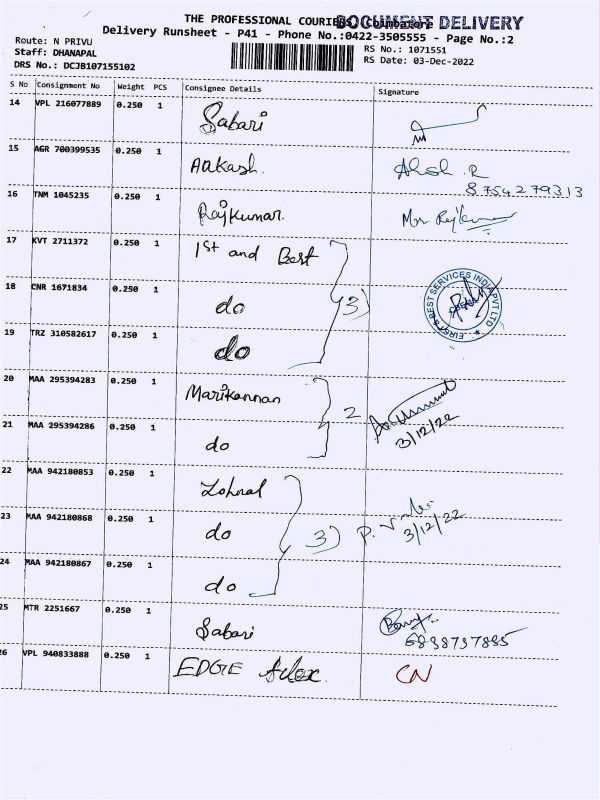 THE PROFESSIONAL COURIERS, Coimbatore
DOCUMENT DELIVERY
Delivery Runsheet - P41 - Phone No.:0422-3505555 - Page No.:2
Route: N PRIVU
Staff: DHANAPAL
DRS No.: DCJB107155102
RS No.: 1071551
RS Date: 03-Dec-2022
S No Consignment No Weight PCS Consignee Details Signature
14 VPL 216077889 0.250 1 Sabari
15 AGR 700399535 0.250 1 AAkash. R
8754279313
16 TNM 1045235 0.250 1 Rajkumar.
17 KVT 2711372 0.250 1 1st and Best
18 CNR 1671834 0.250 1 do 3)
FIRST & BEST SERVICES INDIA PVT LTD
19 TRZ 310582617 0.250 1 do
20 MAA 295394283 0.250 1 Marikannan 2
3/12/22
21 MAA 295394286 0.250 1 do
22 MAA 942180853 0.250 1
23 MAA 942180868 0.250 1 do 3) P.
3/12/22
24 MAA 942180867 0.250 1 do
25 MTR 2251667 0.250 1 Sabari
26 VPL 940833888 0.250 1 EDGE CN